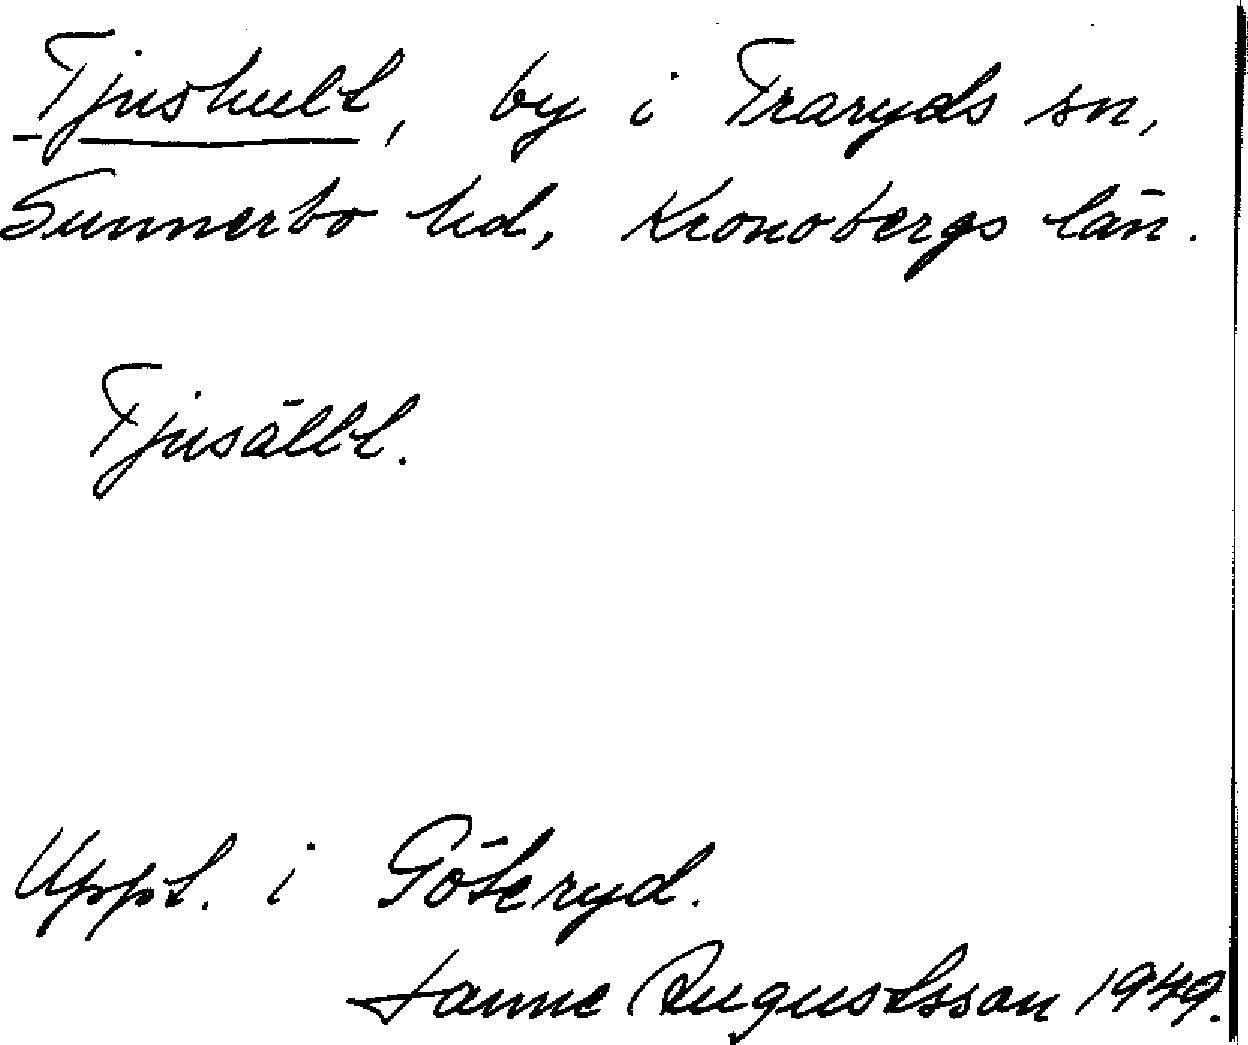 Tjushult, by i Traryds sn,
Sunnerbo hd, Kronobergs län.
Tjusällt.
Uppt. i Göteryd.
Janne Augustsson 1949.